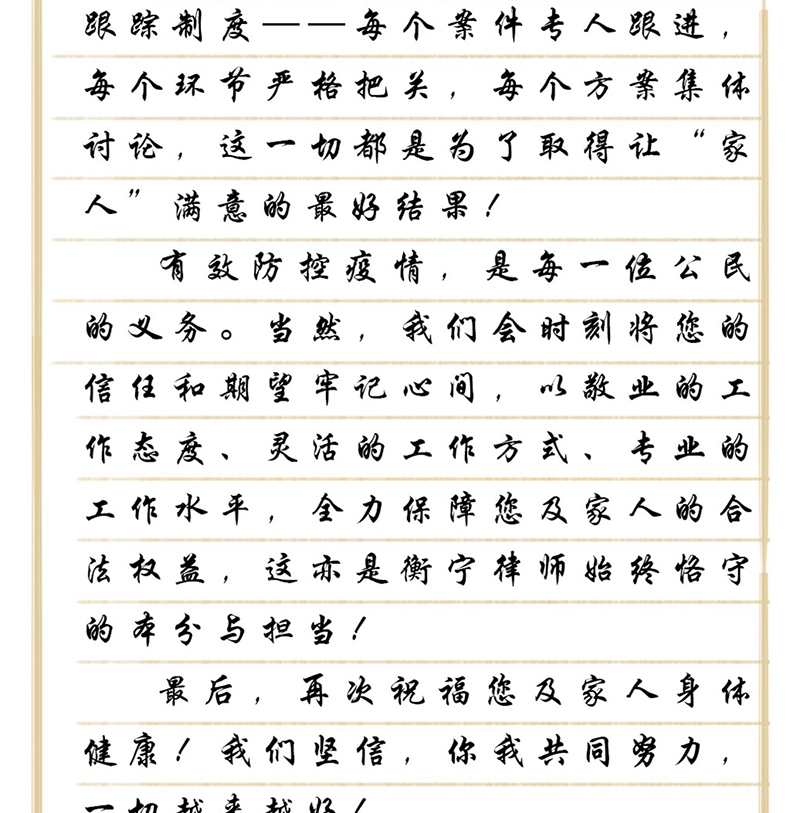 跟踪制度——每个案件专人跟进，
每个环节严格把关，每个方案集体
讨论，这一切都是为了取得让“家
人”满意的最好结果！
有效防控疫情，是每一位公民
的义务。当然，我们会时刻将您的
信任和期望牢记心间，以敬业的工
作态度、灵活的工作方式、专业的
工作水平，全力保障您及家人的合
法权益，这亦是衡宁律师始终恪守
的本分与担当！
最后，再次祝福您及家人身体
健康！我们坚信，你我共同努力，
一切越来越好！